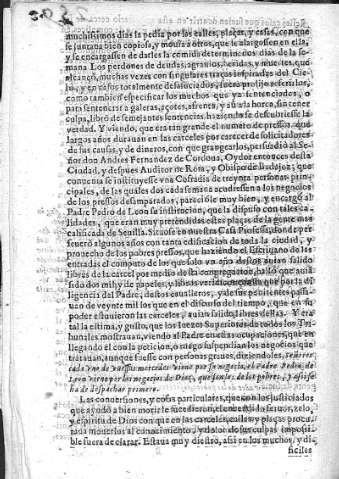 muchissimos dias la pedia por las calles, plaças, y casas, con que
se juntaua bien copiosa, y mouia a otros, que le alargassen en ella,
y se encargassen de darles la comida determinados dias de la se
mana Los perdones de deudas, agrauios, heridas, y muertes, que
alcançò, muchas vezes con singulares traças inspiradas del Cie
lo, y en casos totalmente desafuciados, fuera prolijo referirlos,
como tambien especificar los muchos que ya sentenciados, o
para sentenciar a galeras, açotes, afrenta, y aun la horca, sin tener
culpa, librò de semejantes sentencias, haziendo se descubriesse la
verdad. Y viendo, que era tan grande el numero de pressos, que
largos años durauan en las carceles por carecer de solicitadores
de sus causas, y de dineros, con que grangearlos, persuadiò al Se
ñor don Andres Fernandez de Cordoua, Oydor entonces desta
Ciudad, y despues Auditor de Rota, y Obispo de Badajoz, que
conuenia se instituyesse vna Cofradia de treynta personas prin
cipales, de las quales dos cada semana acudiessen a los negocios
de los pressos desamparados, pareciòle muy bien, y encargò al
Padre Pedro de Leon la institucion, que la dispuso con tales ca
lidades, que eran muy pretendidas estas plaças de la gente mas
calificada de Seuilla. Situòse en nuestra Casa Professa, donde per
seuerò algunos años con tanta edificacion de toda la ciudad, y
prouecho de los pobres pressos, que haziendo el Escriuano de las
entradas el computo de los que solo vn año destos auian salido
libres de la carcel por medio desta congregacion, hallò que auia
sido dos mil
ligencia del Padre, destos caualleros, y de sus penitentes passa
uan de veynte mil los que en el discurso del tiempo, que en su
poder estuuieron las carceles, auian salido libres dellas. Y era
tal la estima, y gusto, que los Iuezes Superiores de todos los Tri
bunales mostrauan, viendo al Padre en estas ocupaciones, que en
llegando el con la peticion, o ruego suspendian los negocios que
tratauan, aunque fuesse con personas graues, diziendoles, Señores,
cada vno de vuessas mercedes viene por su negocio, el Padre Pedro de
Leon viene por los negocios de Dios, que son los de los pobres, y assi se
ha de despachar primero.
Las conuersiones, y cosas particulares, que con los justiciados
que ayudò a bien morir le sucedieron,
y espiritu de Dios con que en las carceles, calles, y plaças procu
raua mouerlos al conocimiento, y dolor de sus culpas impossi
ble fuera de contar. Estaua muy diestro, assi en los muchos, y di
ficiles